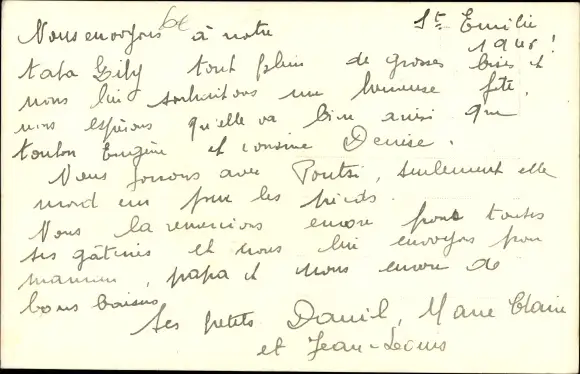 6€
St Emilie
1946!
Nous envoyons à notre
tata Gily tout plein de grosses bises et
nous lui souhaitons une heureuse fête.
nous espérons qu'elle va bien ainsi que
tonton Eugène et cousine Denise.
Nous jouons avec, seulement elle
mord un peu les pieds.
Nous la remercions encore pour toutes
ses gâteries et nous lui envoyons pour
maman, papa et nous encore de
bons baisers
Ses petits Daniel, Marie Claire
et Jean-Louis